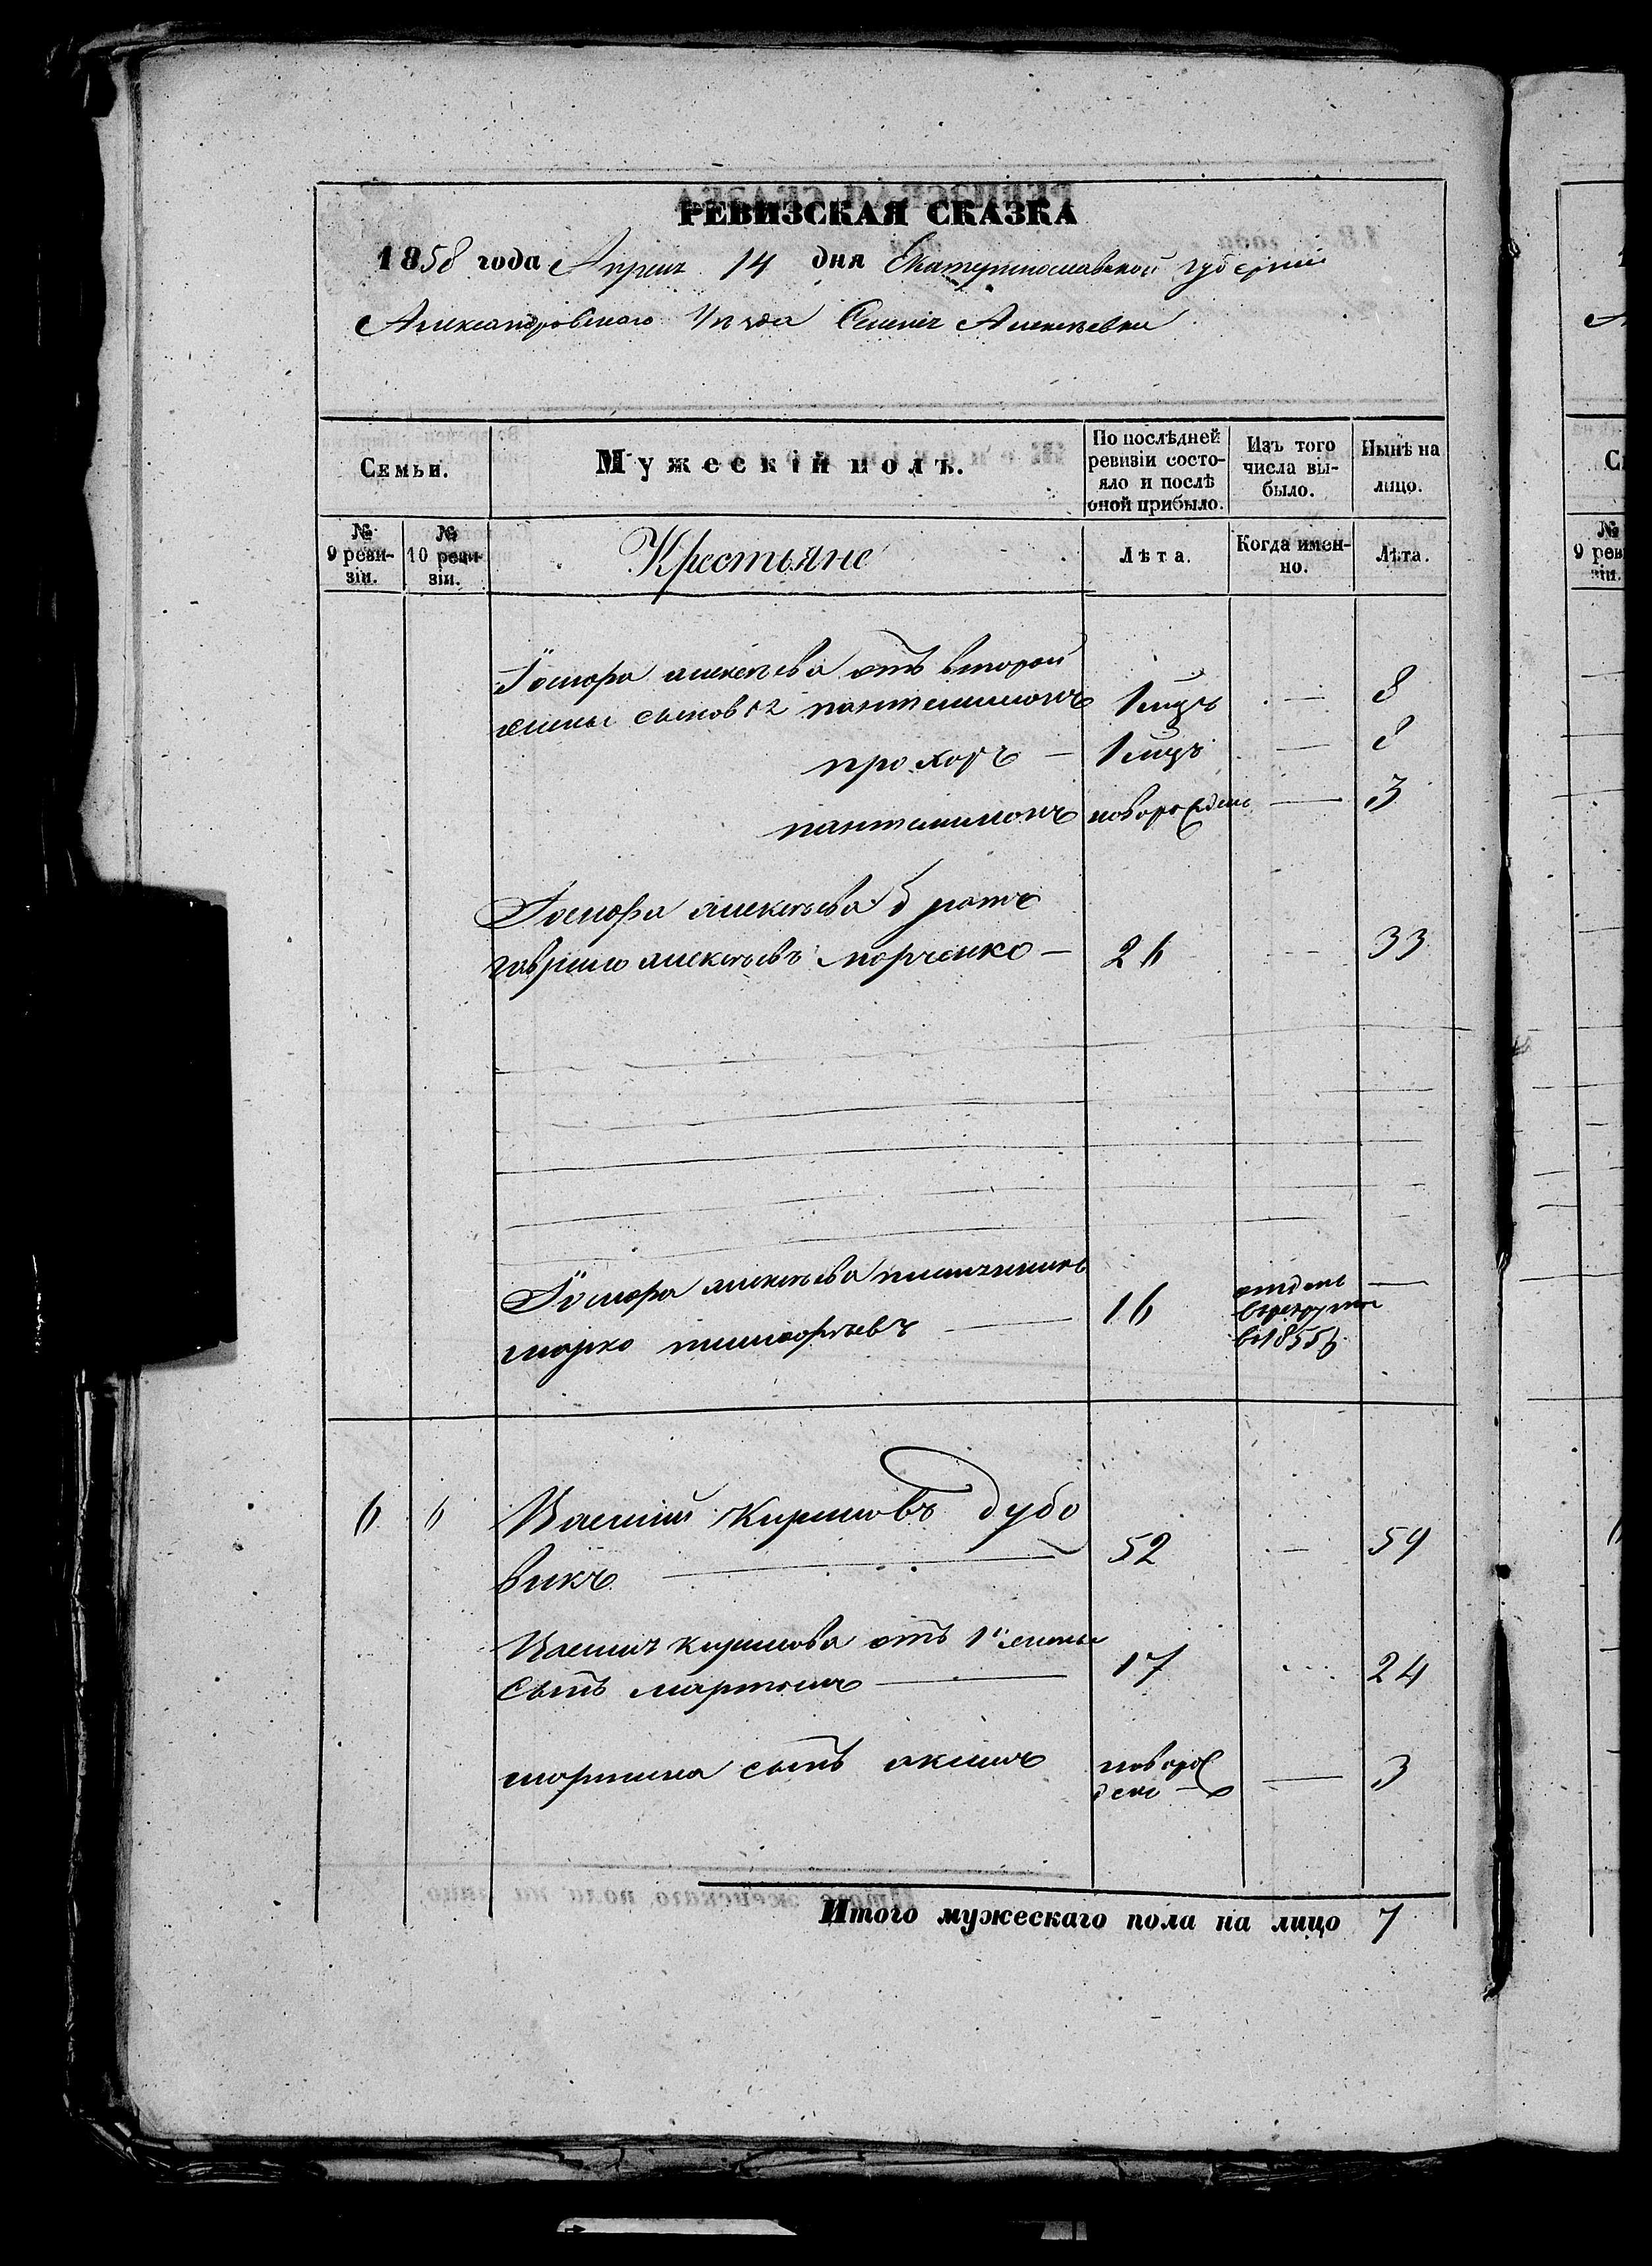 РЕВИЗСКАЯ СКАЗКА
1858 года Априля 14 дня Екатеринославской губернии
Александровскаго Уѣзда Алексѣевки
Семьи.
Мужескій полъ.
По послѣдней ревизіи состояло и послѣ оной прибыло.
Изъ того числа выбыло.
Нынѣ на лицо.
№ 9 ревизіи.
№ 10 ревизіи.
Крестьяне
Лѣта.
Когда именно.
Лѣта.
алексѣева отъ второй
жены пантелимонъ 1 мцъ — 8
прохоръ — 1 мцъ — 8
пантелимонъ новорожден — 3
алексѣева братъ
гаврило алексѣевъ марченко — 26 --- 33
алексѣева племяникъ
марко тимофѣевъ — 16 отдан в рекруты в 1855г —
6 6 Василий Кириловъ Дубо
викъ — 52 — 59
Василия Кирилова отъ 1й жены
сынъ мартынъ — 17 --- 24
мартына сынъ акимъ новорож
ден — 3
Итого мужескаго пола на лицо 7